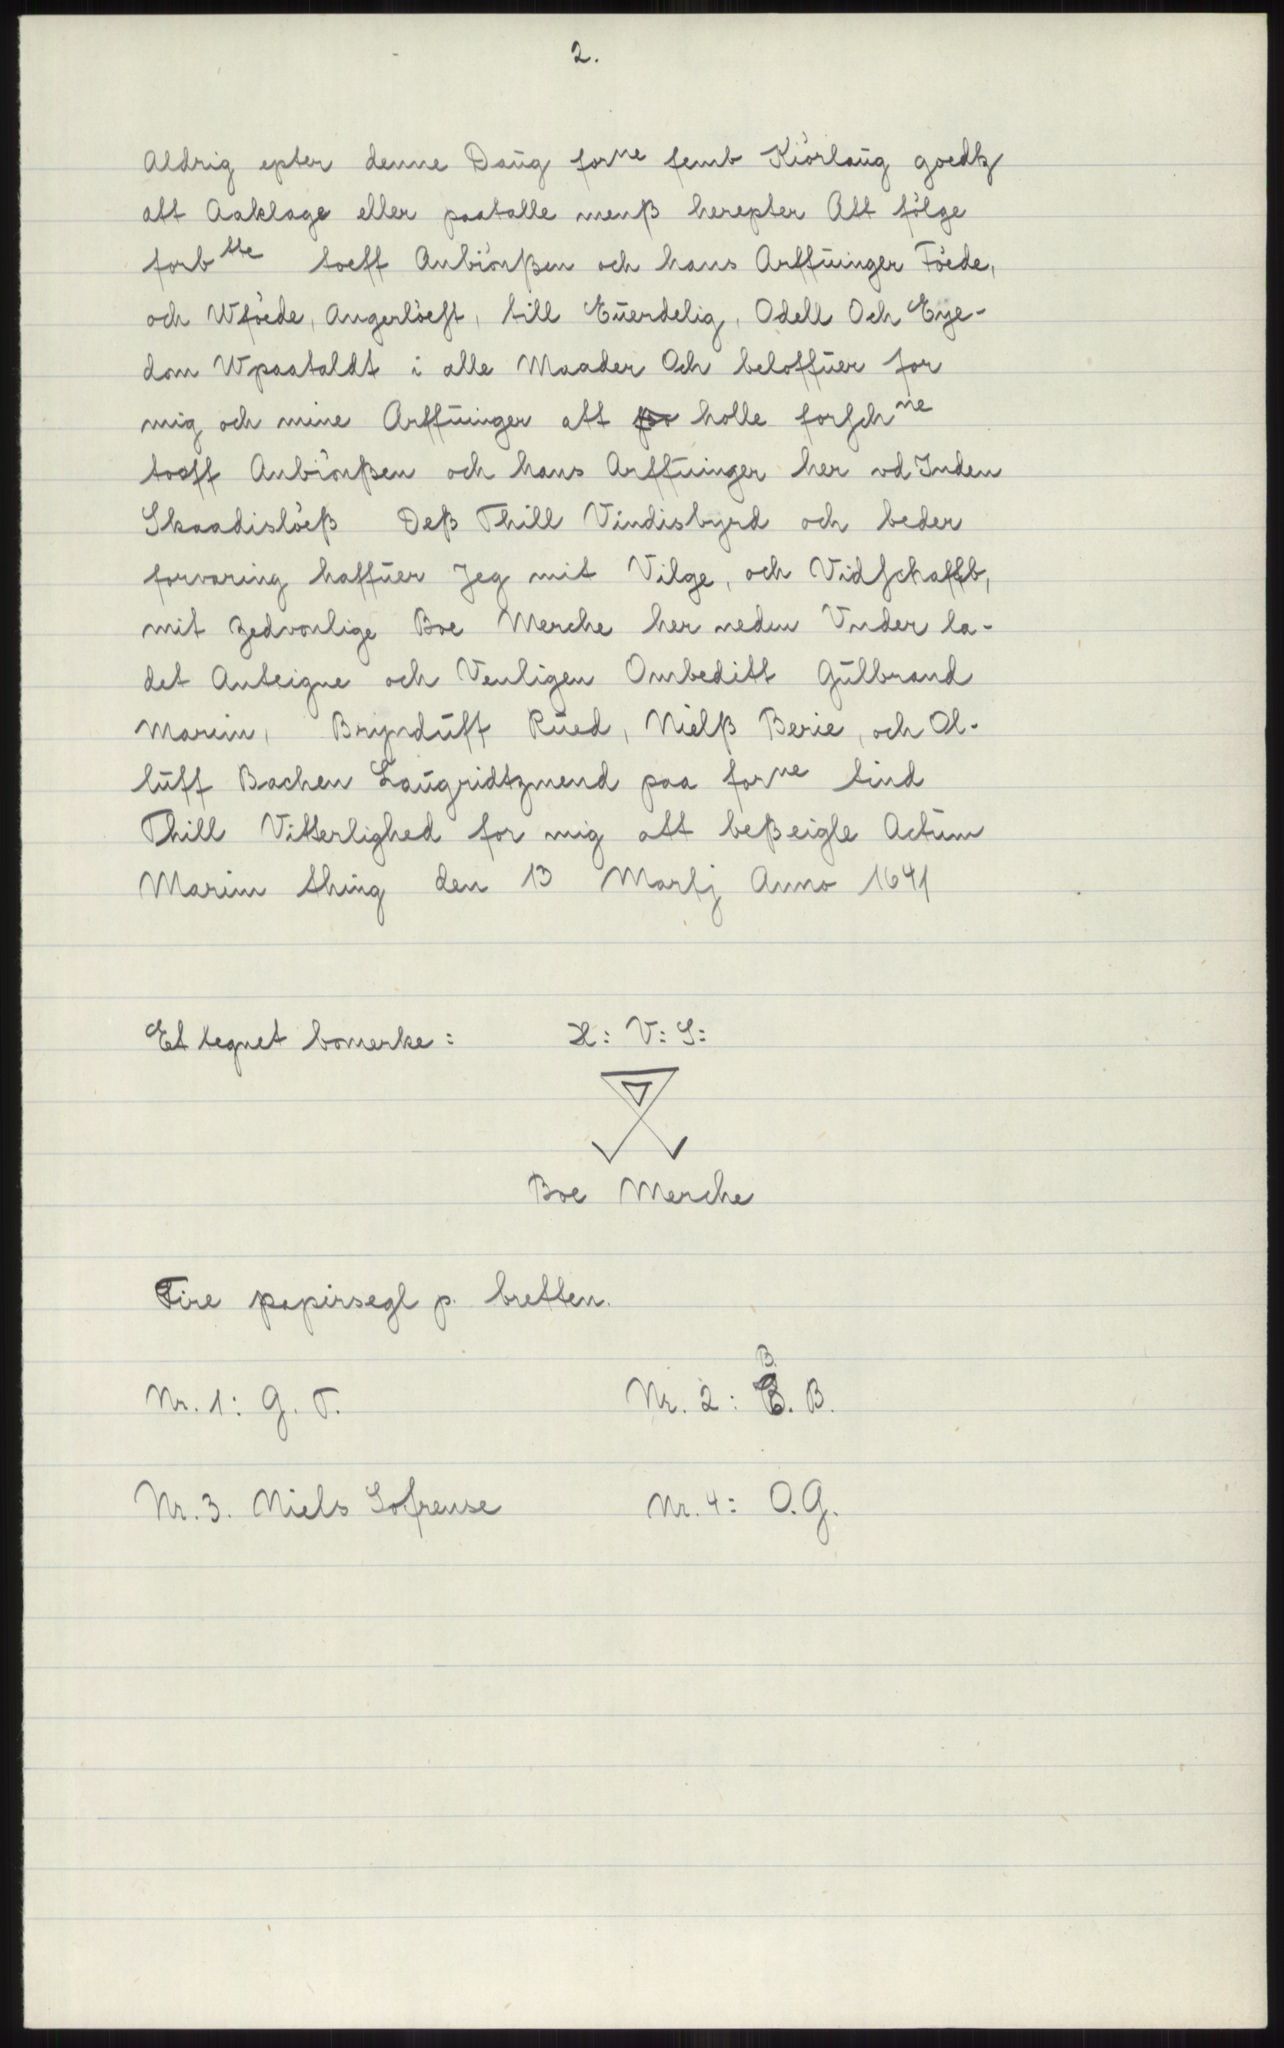 2.
Aldrig epter denne Daug forne femb Kiörlaug goedtz
att Aaklage eller paatalle menß herepter Att fölge
forbtte toeff Anbiönßen och hans Arffuinger Föede,
och Wföede, Angerlöest, till Euerdelig, Odell Och Eye-
dom Wpaataldt i alle Maader Och beloffuer for
mig och mine Arffuinger att holle forschne
toeff Anbiönßen och hans Arffuinger her vd Inden
Skaadislöeß Deß Thill Vindisbyrd och beder
forvaring haffuer Jeg mit Vilge, och Vidschaffb,
mit zedvonlige Boe Merche her neden Vnder la-
det Anteigne och Venligen Ombeditt Gulbrand
Marim, Brynduff Rued, Nielß Berie, och Ol-
luff Bachen Laugridtzmend paa forne tind
Thill Vitterlighed for mig att beßeigle Actum
Marim thing den 13 Martj Anno 1641
Et tegnet bomerke: H: V: S:
Boe Merche
Fire papirsegl p. bretten.
Nr. 1: G. T. Nr. 2: B. B.
Nr. 3. Niels Sofrense Nr. 4: O. G.